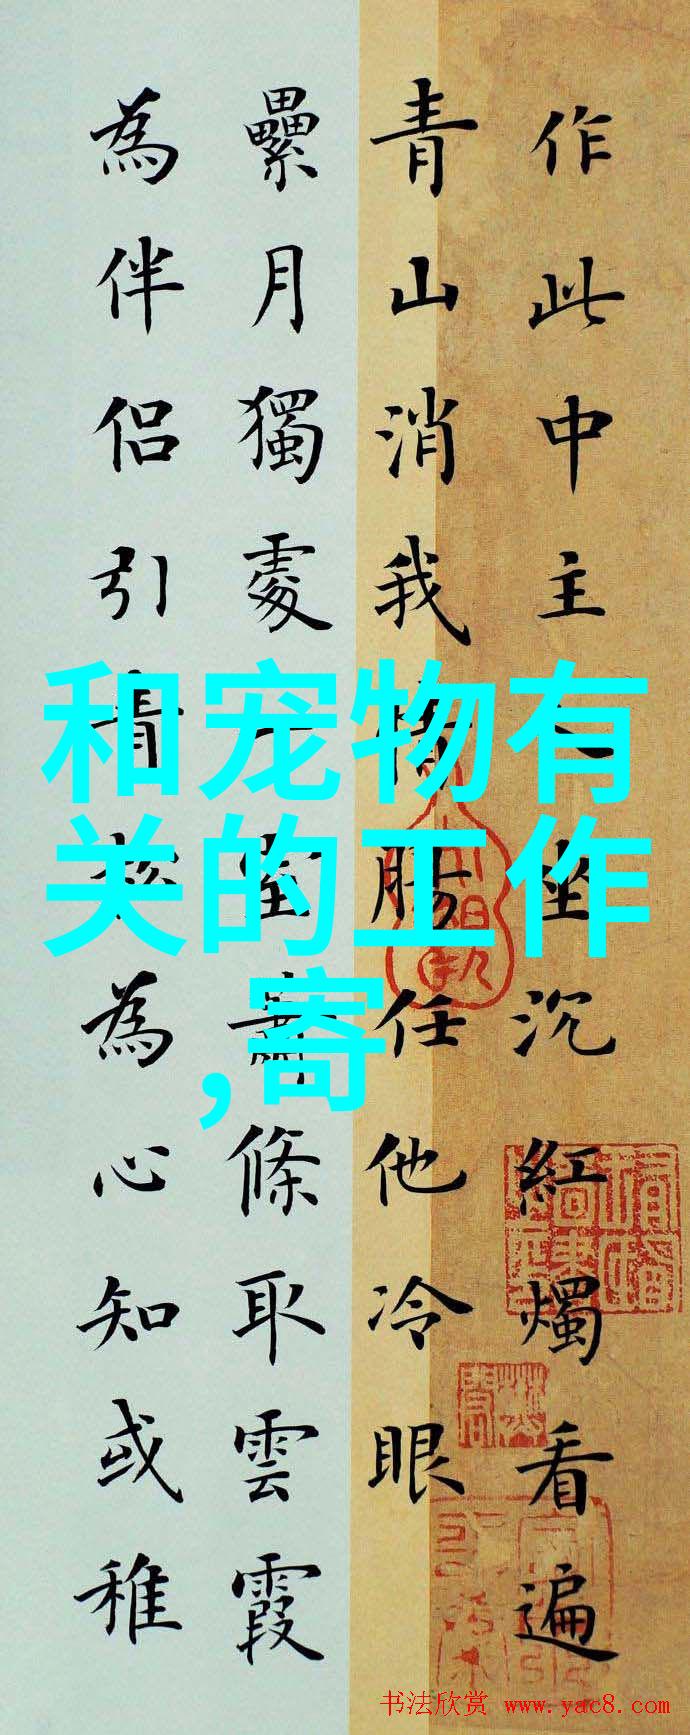 作此中主人坐沉紅燭看遍
青山消我情腸任他冷眼
纍月獨處一室蕭條取雲霞
為伴侶引青松為心知或稚
和宠物有
关的工作
,寄
书法欣赏 www.yac8.com